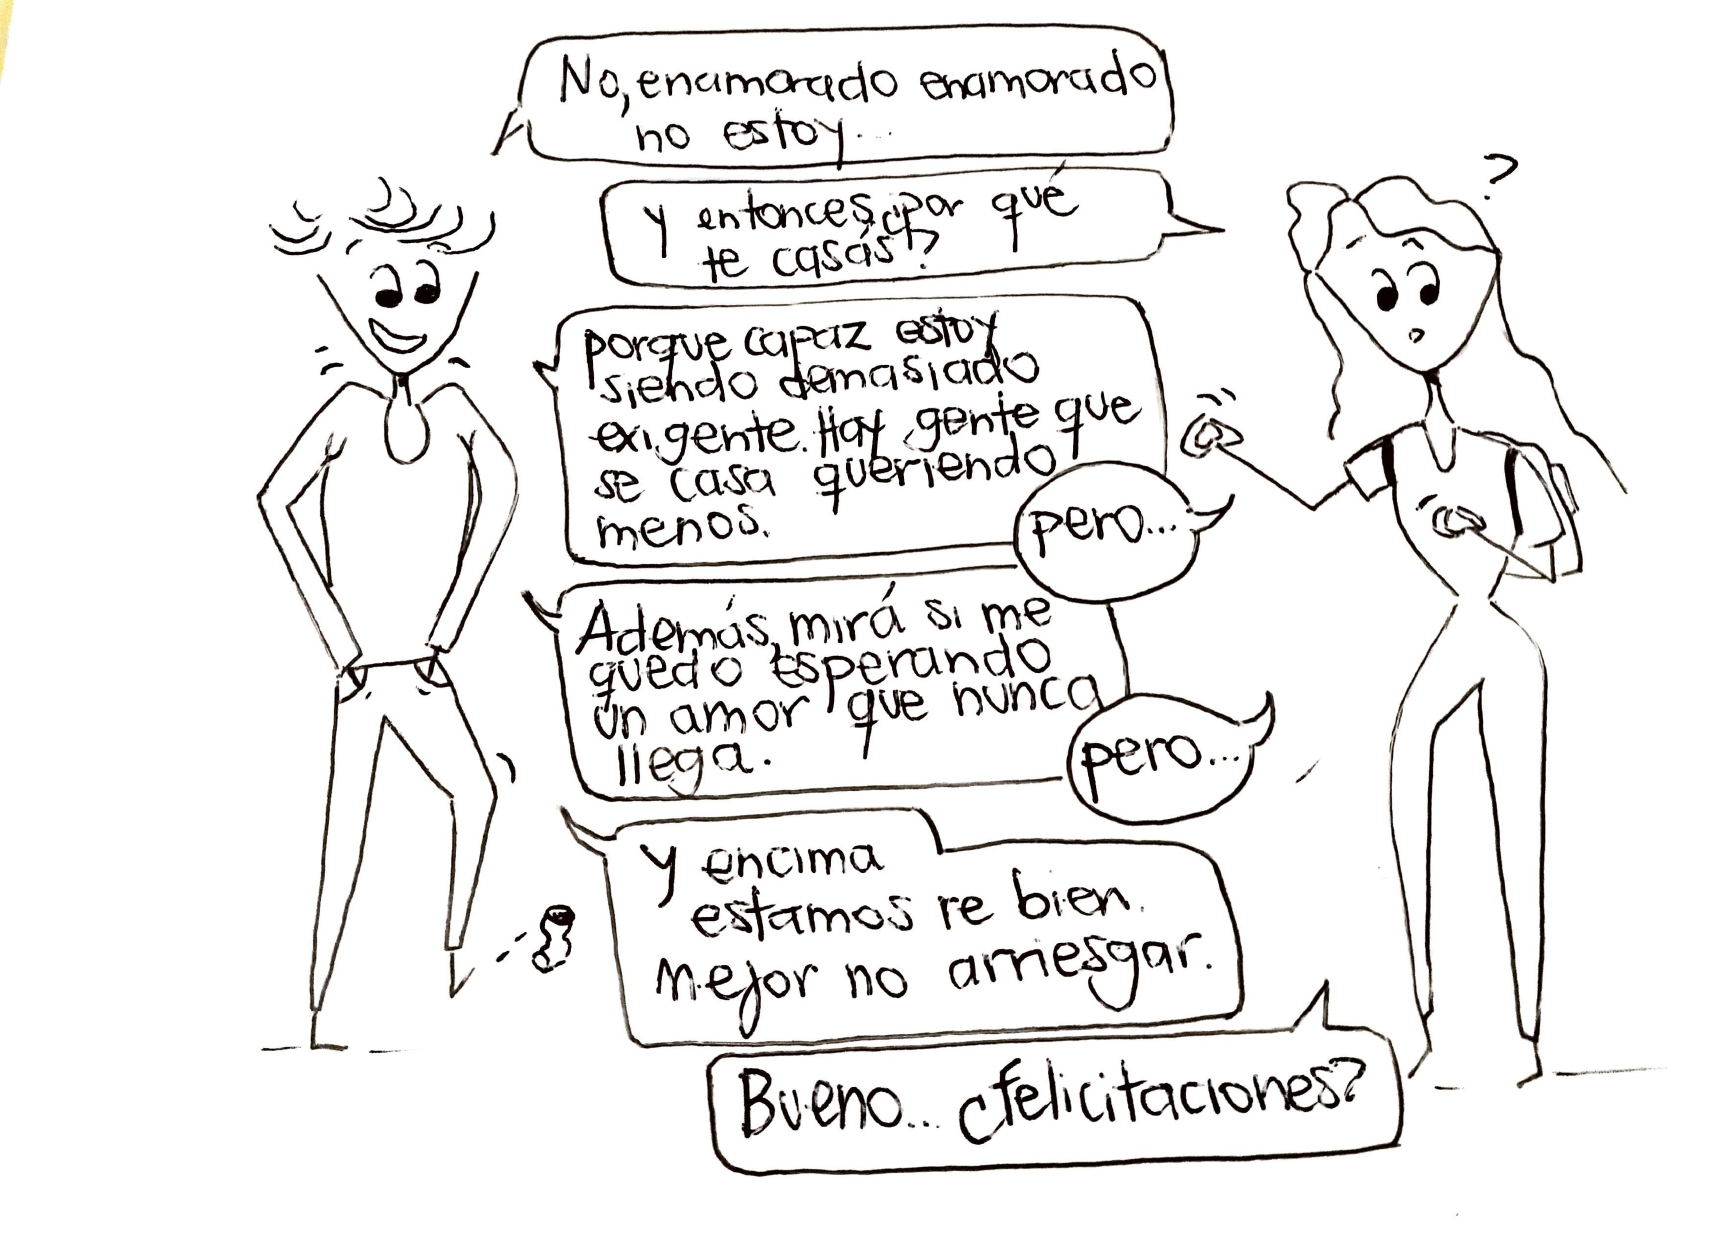 No, enamorado enamorado
no estoy...
y entonces ¿por qué
te casás?
porque capaz estoy
siendo demasiado
exigente. Hay gente que
se casa queriendo
menos.
pero...
Además, mirá si me
quedo esperando
un amor que nunca
llega.
pero...
y encima
estamos re bien.
Mejor no arriesgar.
Bueno... ¿felicitaciones?
?